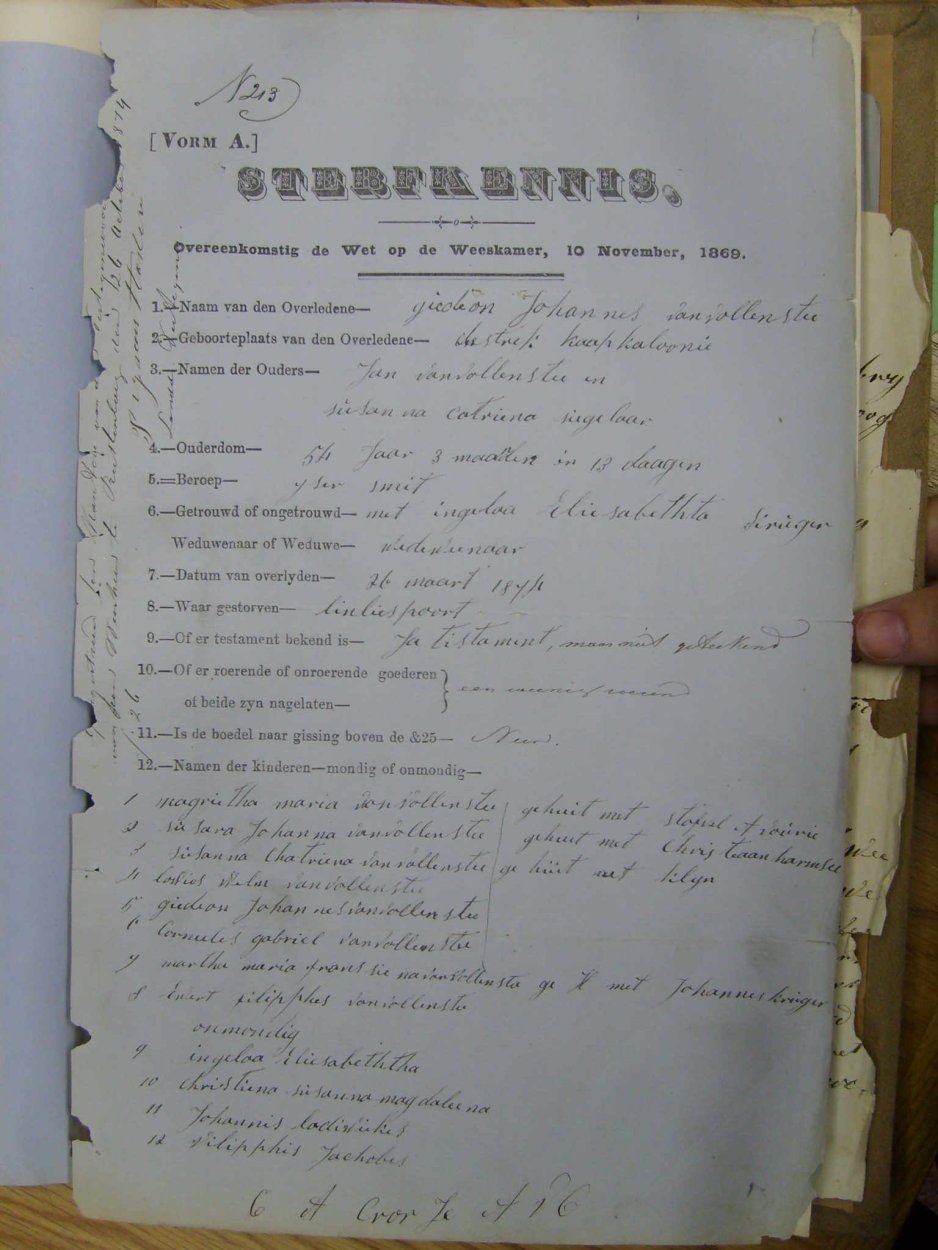 N 213
[VORM A.]
STERFKENNIS,
Overeenkomstig de Wet op de Weeskamer, 10 November, 1869.
1.—Naam van den Overledene— giedeon Johannes vanvollenstee
2.—Geboorteplaats van den Overledene— distrek kaapkaloonie
3.—Namen der Ouders— Jan vanvollenstee en
susanna catriena siegelaar
4.—Ouderdom— 54 Jaar 3 maanden in 13 daagen
5.—Beroep— yser smit
6.—Getrouwd of ongetrouwd— met ingeloa Eliesabethta krieger
Weduwenaar of Weduwe— wedewenaar
7.—Datum van overlyden— 26 maart 1874
8.—Waar gestorven— linliespoort
9.—Of er testament bekend is— Ja tistament, maar niet geteekend
10.—Of er roerende of onroerende goederen
of beide zyn nagelaten— een weinig
11.—Is de boedel naar gissing boven de &25— Neen.
12.—Namen der kinderen—mondig of onmondig—
1 magrietha maria vanvollenstee gehuit met stofel
2 susara Johanna vanvollenstee gehuit met Christeaan harmse
3 susanna Chatriena vanvollenstee gehuit met klyn
4 lowies welm vanvollenstee
5 giedeon Johannes vanvollenstee
6 Cornieles gabriel vanvollenstee
7 martha maria fransiena vanvollenste ge H met Johannes kruger
8 Evert filipphes vanvollenste
onmondig
9 ingeloa Eliesabeththa
10 christiena susanna magdaleena
11 Johannis lodiwikes
12 filipphis Jachobes
C A CronJe A